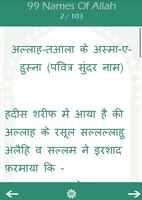 99 Names Of Allah
2 / 103
अल्लाह-तआला के अस्मा-ए-
हुस्ना (पवित्र सुंदर नाम)
हदीस शरीफ में आया है की
अल्लाह के रसूल सल्लल्लाहु
अलैहि व सल्लम ने इरशाद
फ़रमाया कि -